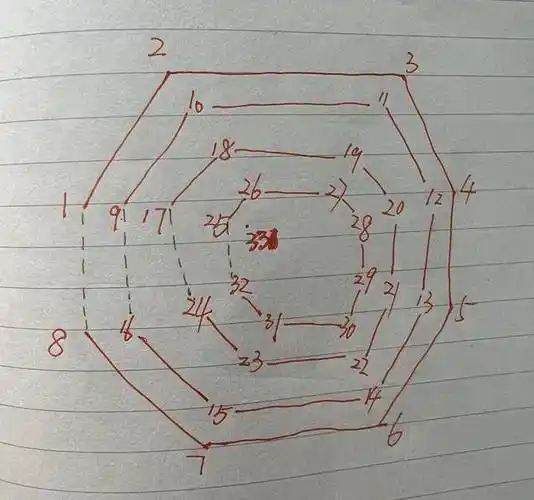 2
3
10
11
18
19
26
27
1
9
17
25
28
20
12
4
33
32
29
21
13
5
24
8
16
31
30
23
22
15
14
7
6